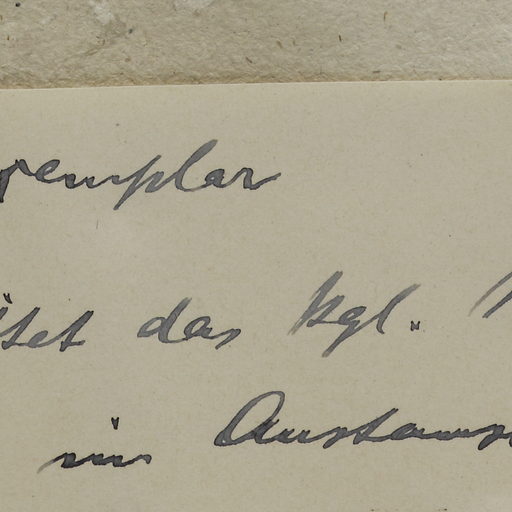 xemplar
itet das kgl.
im Austaus